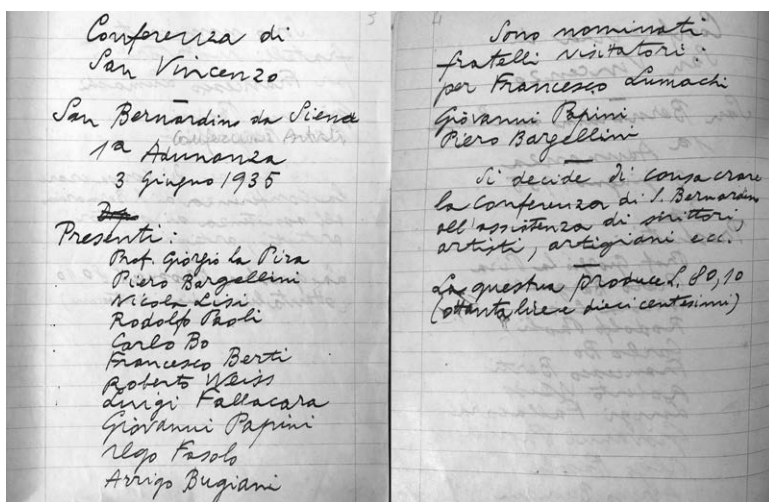 Conferenza di
San Vincenzo
San Bernardino da Siena
1ª Adunanza
3 Giugno 1935
Presenti:
Prof. Giorgio la Pira
Piero Bargellini
Nicola Lisi
Rodolfo Paoli
Carlo Bo
Francesco Berti
Roberto Weiss
Luigi Fallacara
Giovanni Papini
Ugo Fasolo
Arrigo Bugiani
4
Sono nominati
fratelli visitatori:
per Francesco Lumachi
Giovanni Papini
Piero Bargellini
Si decide di consacrare
la Conferenza di S. Bernardino
all'assistenza di scrittori,
artisti, artigiani ecc.
La questua produce L. 80,10
(ottanta lire e dieci centesimi)